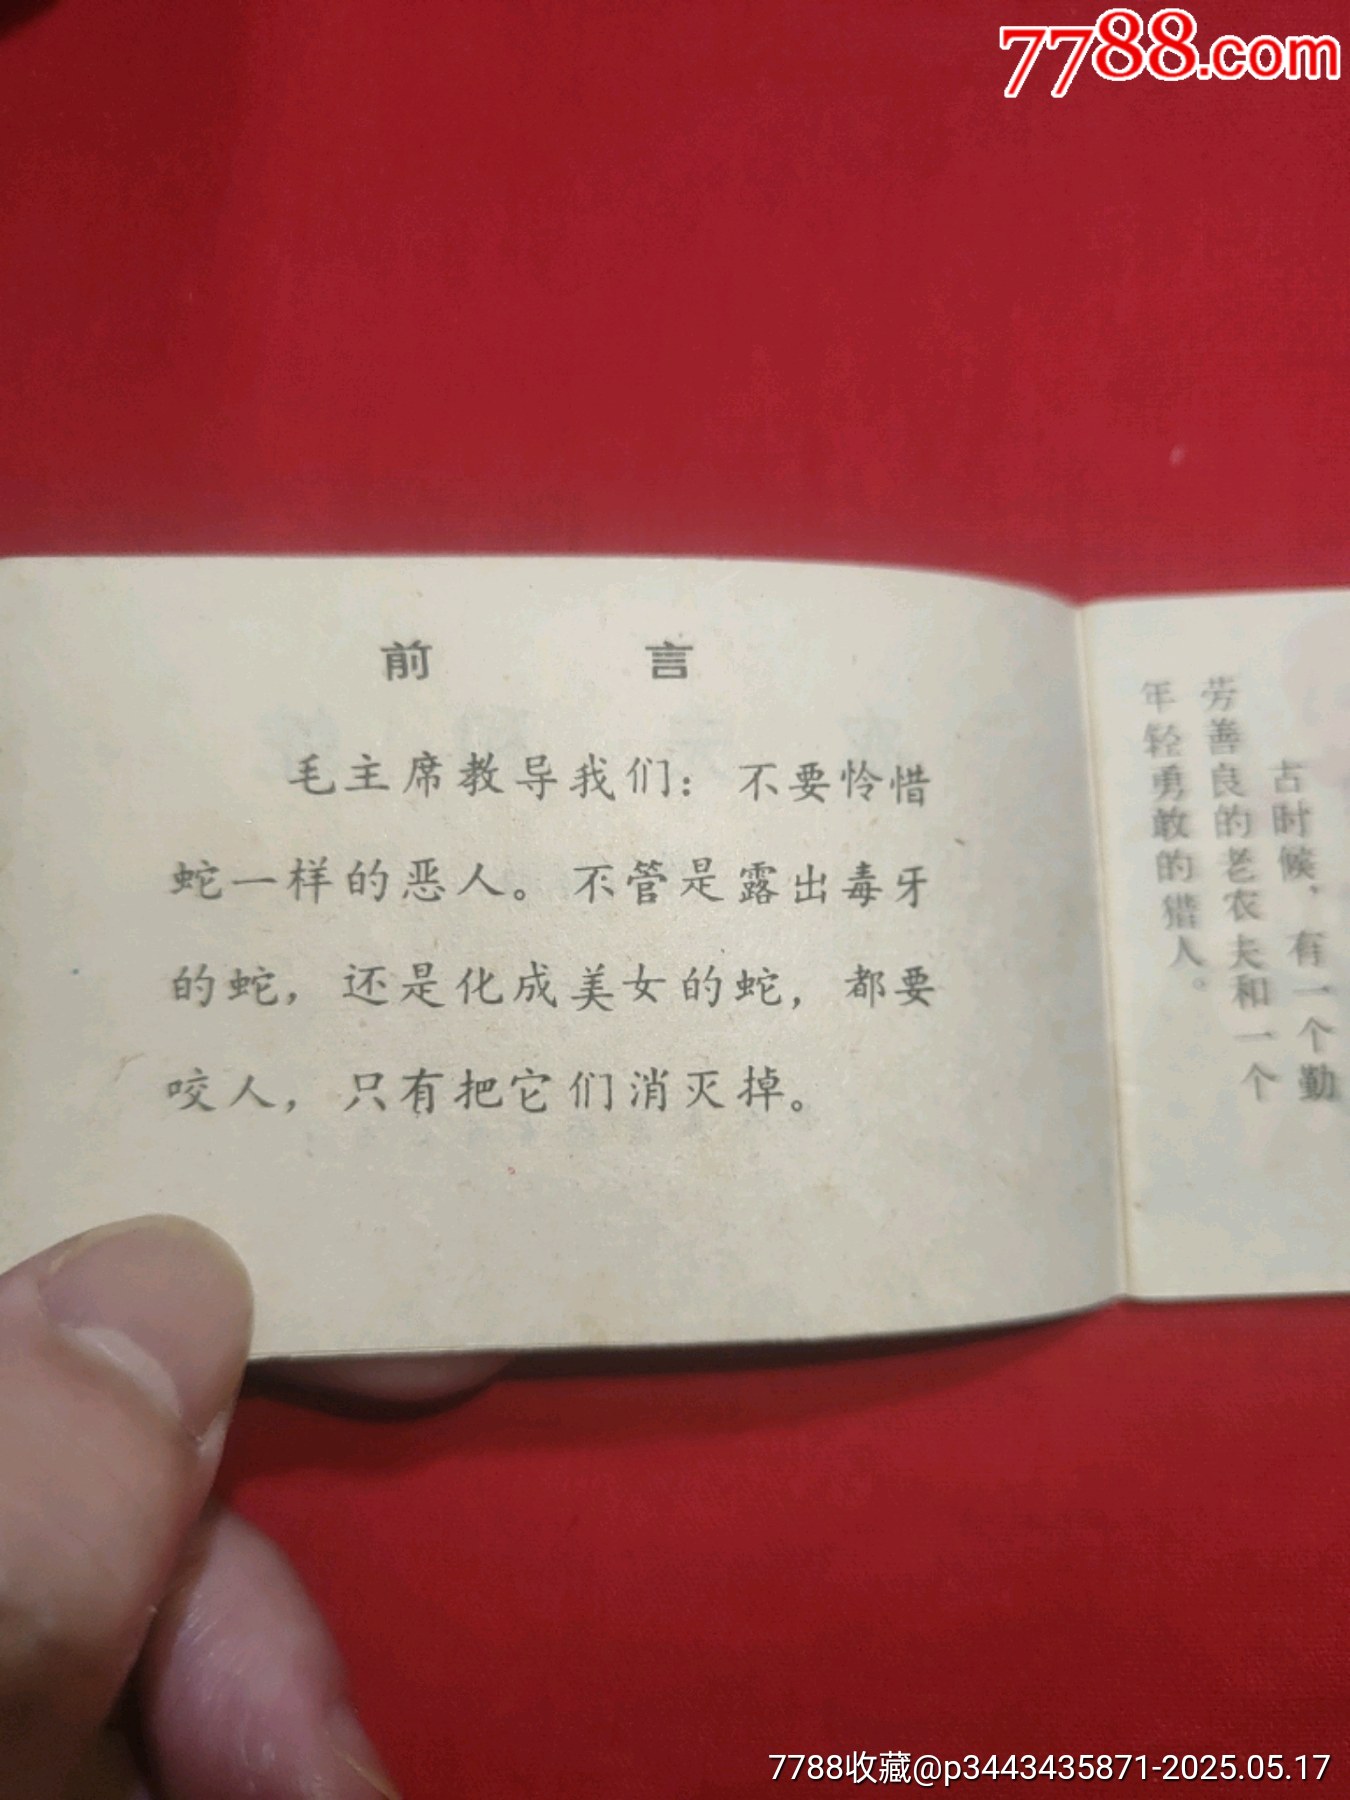 7788.com
前言
毛主席教导我们：不要怜惜
蛇一样的恶人。不管是露出毒牙
的蛇，还是化成美女的蛇，都要
咬人，只有把它们消灭掉。
古时候，有一个勤
劳善良的老农夫和一个
年轻勇敢的猎人。
7788收藏@p3443435871-2025.05.17